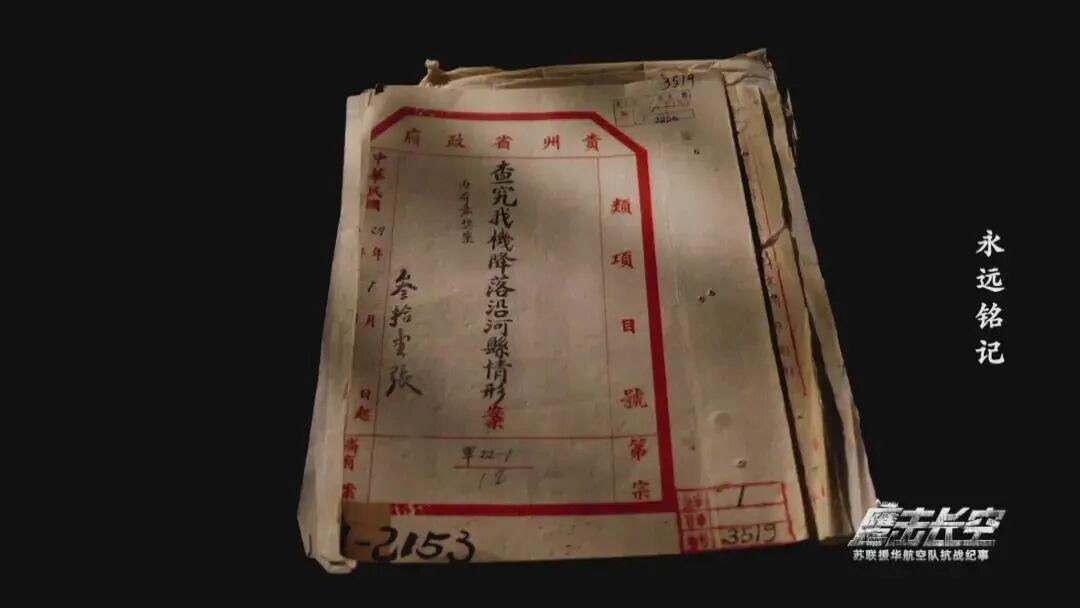 3519
貴州省政府
類項目號
第宗
查究我機降落沿河縣情形案
叁拾壹張
中華民國
年
1月
日起
軍22-1
12
1
3519
1-2153
永远铭记
鹰击长空
苏联援华航空队抗战纪事